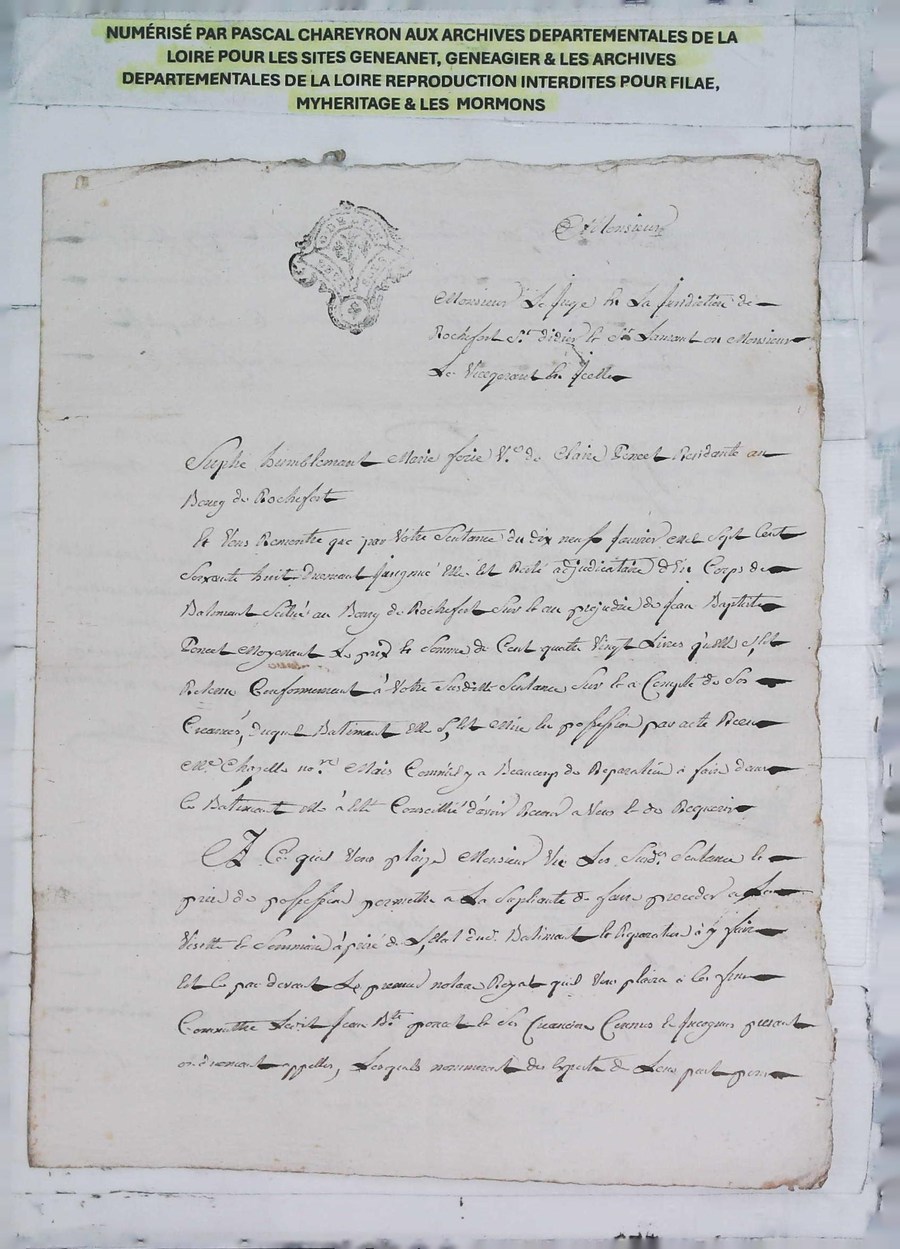 NUMÉRISÉ PAR PASCAL CHAREYRON AUX ARCHIVES DEPARTEMENTALES DE LA
LOIRE POUR LES SITES GENEANET, GENEAGIER & LES ARCHIVES
DEPARTEMENTALES DE LA LOIRE REPRODUCTION INTERDITES POUR FILAE,
MYHERITAGE & LES MORMONS
A Monsieur
Monsieur Le Juge En La Juridiction de
Rochefort St didier et St Laurant ou Monsieur
Le Vicegerant En Icelle
Suplie humblemant Marie Ve de Claire Poncet Residante au
Bourg de Rochefort
Et Vous Remontre que par Votre Sentance du dix neuf Janvier mil Sept Cent
Soixante huit duemant elle Est Resté adjudicataire d'un Corps de
Batimant Scitué au Bourg de Rochefort Sur et au prejudice de Jean Baptiste
Poncet Moyenant Le prix et Somme de Cent quatre Vingt Livres quelle s'est
Retenu Conformemant à Votre Susditte Sentance Sur et a Compte de Ses
Creances, duquel Batimant elle s'est Mise En possession par acte Receu
Me Chapelle nore Mais Comm'il y a Beaucoup de Reparation a faire dans
Ce Batimant elle à été Conseillé d'avoir Recour a Vous et de Requerir
A Ce quil Vous plaize Monsieur Vu Les Susd. Sentance et
prise de possession permettre a La Supliante de faire proceder a
Visitte et Sommaire aprisé de L'Etat dud. Batimant et Reparation à y faire
Et Ce par devant Le premier notaire Royal quil Vous plaira à Ces fins
Committre Ledit Jean Bte poncet et Ses Creanciers Connus et Incognus presant
ou duemant appelles, Lesquels nommeront des Experts de Leur part